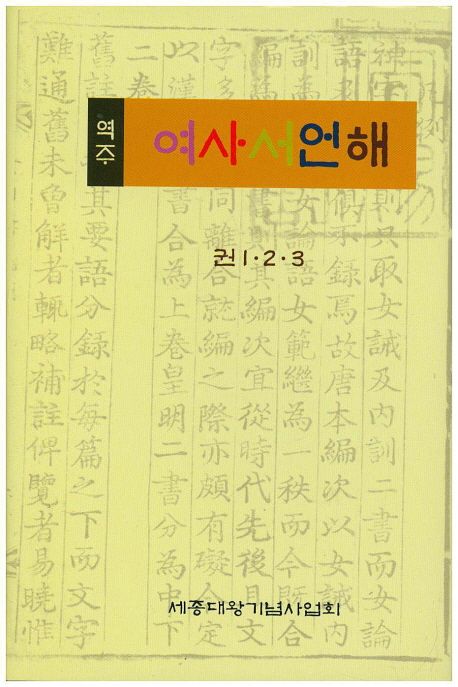 역주
여사서언해
권 1·2·3
세종대왕기념사업회
則只取女誡及內訓二書而女論
不錄焉故唐本編次以女誡內
女論語女範繼為一秩而今旣合
書則其編次宜從時代先後且
字多 同離合 編之際亦頗有礙今定
以漢 書合為上卷皇明二書分為中下
二卷
舊註 其要語分錄於每篇之下而文字
難通舊未曾解者輒略補註俾覽者易曉惟